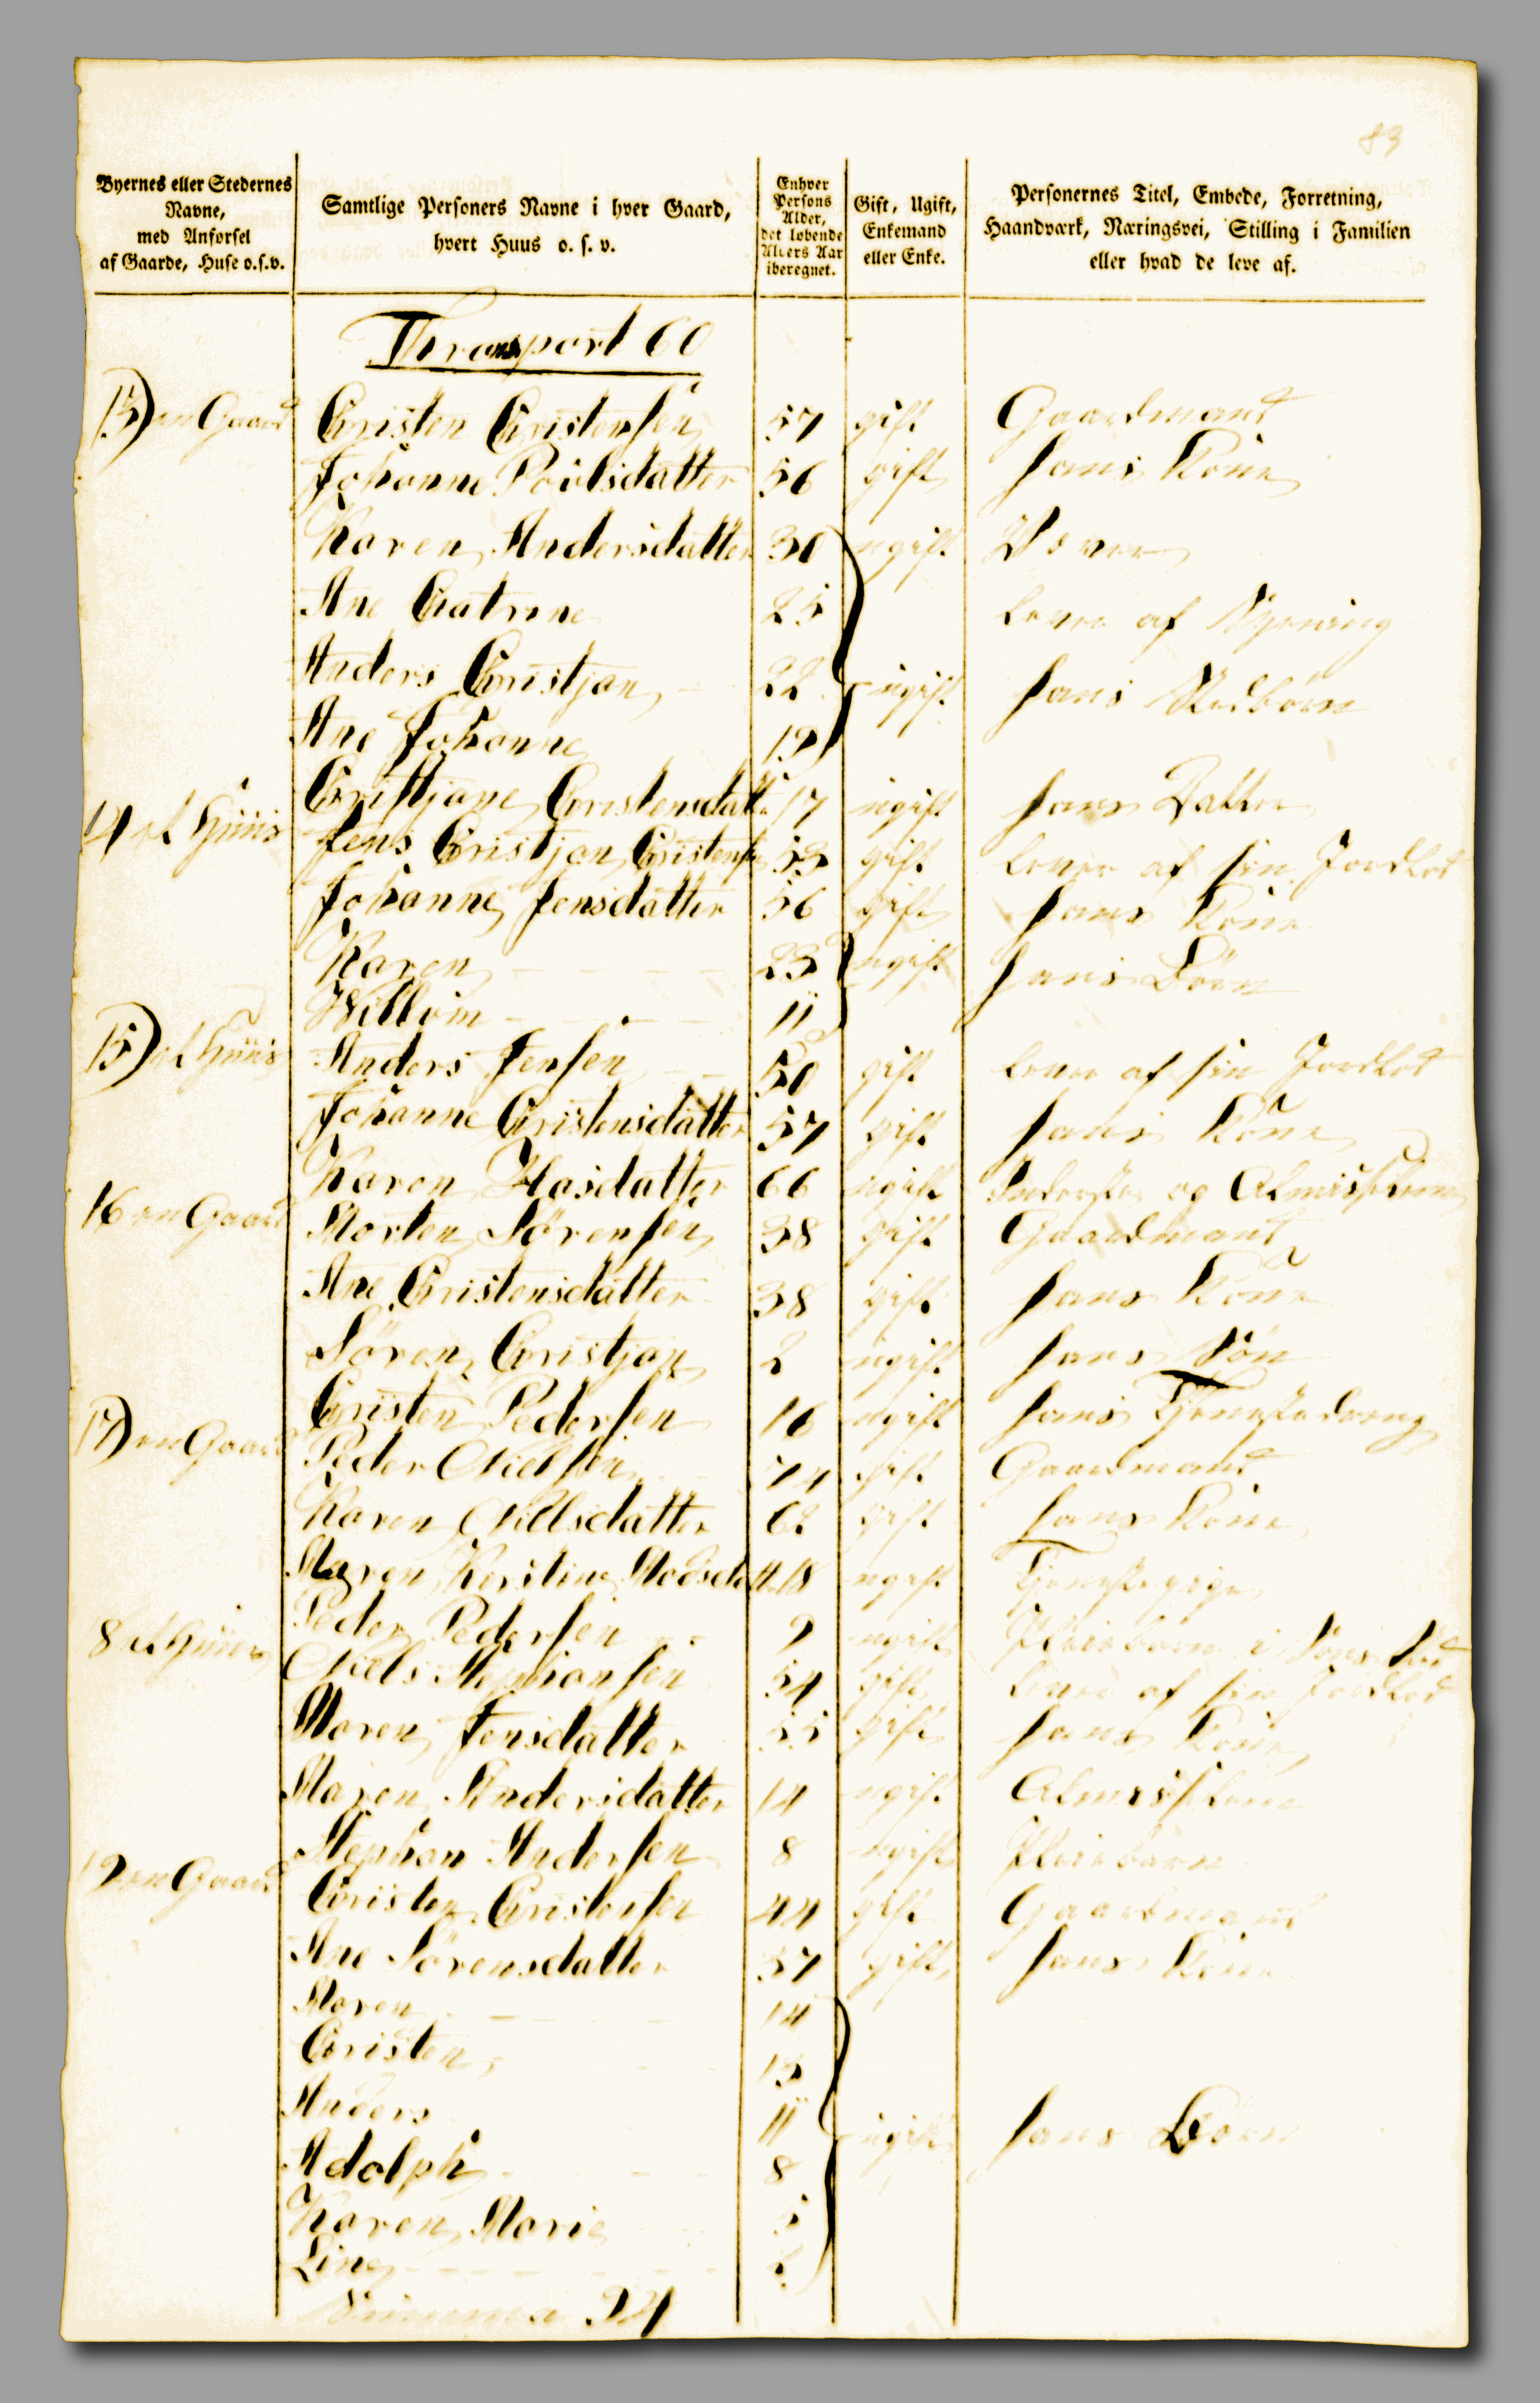 83
Byernes eller Stedernes Navne, med Anførsel af Gaarde, Huse o.s.v.
Samtlige Personers Navne i hver Gaard, hvert Huus o. s. v.
Enhver Persons Alder, det løbende Alders Aar iberegnet.
Gift, Ugift, Enkemand eller Enke.
Personernes Titel, Embede, Forretning, Haandværk, Næringsvei, Stilling i Familien eller hvad de leve af.
Transport 60
13) en Gaard Cristen Cristensen 57 gift Gaardmand
Johanne Poulsdatter 56 gift hans Kone
Karen Andersdatter 30 ugift
Ane Catrine 25 lever af
Anders Cristjan 22 ugift hans
Ane Johanne 19
Cristjane Cristensdatt. 17 ugift hans Datter
14 et Huus Jens Cristjan Cristensen 53 gift lever af sin Jordlod
Johanne Jensdatter 56 gift hans Kone
Karen 23 ugift hans Børn
Willom 11
15) et Huus Anders Jensen 50 gift lever af sin Jordlod
Johanne Cristensdatter 57 gift hans Kone
Karen Hasdatter 66 ugift Inderste og Almisselem
16 en Gaard Morten Sørensen 38 gift Gaardmand
Ane Cristensdatter 38 gift hans Kone
Søren Cristjan 2 ugift hans Søn
Cristen Pedersen 16 ugift hans Tjenestedreng
17) en Gaard Peder Nielsen 74 gift Gaardmand
Karen Nielsdatter 62 gift hans Kone
Maren Kirstine Madsdatt. 18 ugift Tjenestepige
Peder Pedersen 9 ugift Pleiebarn i
8 et Huus Niels Stephansen 54 gift lever af sin Jordlod
Maren Jensdatter 55 gift hans Kone
Maren Andersdatter 14 ugift Almisselem
Stephan Andersen 8 ugift Pleiebarn
19 en Gaard Cristen Cristensen 44 gift Gaardmand
Ane Sørensdatter 37 gift hans Kone
Maren 14
Cristen 13
Anders 11 ugift hans Børn
Adolph 8
Karen Marie 5
Line 2
Summa 94